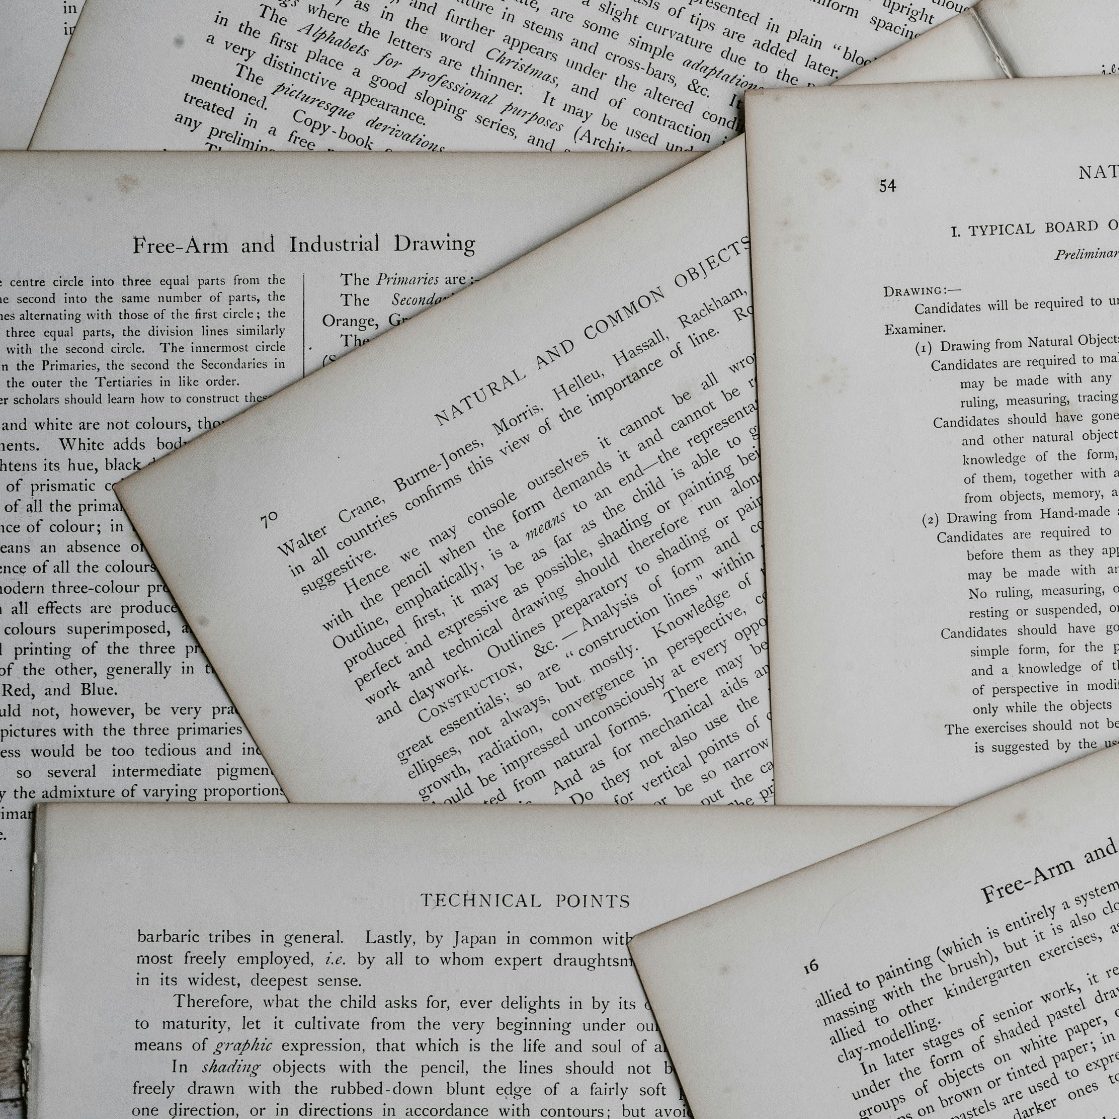 in
presented in plain "bloc
upright
uniform spacing
thous
basis of tips are added later.
are, are some simple adaptations
a slight curvature due to the
nature in stems and cross-bars, &c. It
and further appears under the altered cond
as in the word Christmas, and of contraction
where the letters are thinner. It may be used und
The Alphabets for professional purposes (Archit
in the first place a good sloping series, and
a very distinctive appearance.
The picturesque derivations
mentioned. Copy-book
treated in a free
any prelimin
Free-Arm and Industrial Drawing
centre circle into three equal parts from the
second into the same number of parts, the
alternating with those of the first circle; the
three equal parts, the division lines similarly
with the second circle. The innermost circle
n the Primaries, the second the Secondaries in
the outer the Tertiaries in like order.
er scholars should learn how to construct these
and white are not colours, thou
ments. White adds body
htens its hue, black d
of prismatic co
of all the primar
nce of colour; in
eans an absence of
ence of all the colours
modern three-colour pro
all effects are produce
colours superimposed, a
printing of the three pr
of the other, generally in t
Red, and Blue.
uld not, however, be very prac
pictures with the three primaries
ess would be too tedious and inc
so several intermediate pigment
y the admixture of varying proportions
rimar
e.
The Primaries are :—
The Seconda
Orange, Gr
The
(S
NATURAL AND COMMON OBJECTS
70
Walter Crane, Burne-Jones, Morris, Helleu, Hassall, Rackham,
in all countries confirms this view of the importance of line. Ro
suggestive.
Hence we may console ourselves it cannot be all wro
with the pencil when the form demands it and cannot be r
Outline, emphatically, is a means to an end—the representa
produced first, it may be as far as the child is able to g
perfect and expressive as possible, shading or painting bei
work and technical drawing should therefore run along
and claywork. Outlines preparatory to shading or pain
CONSTRUCTION, &c.—Analysis of form and c
great essentials; so are "construction lines" within
ellipses, not always, but mostly. Knowledge of
growth, radiation, convergence in perspective, c
ould be impressed unconsciously at every oppo
ted from natural forms. There may be
And as for mechanical aids an
Do they not also use the
for vertical points of
or be so narrow
put the ca
he pr
54
NAT
I. TYPICAL BOARD O
Preliminar
DRAWING:—
Candidates will be required to un
Examiner.
(1) Drawing from Natural Objects
Candidates are required to ma
may be made with any
ruling, measuring, tracing
Candidates should have gone
and other natural object
knowledge of the form,
of them, together with a
from objects, memory, a
(2) Drawing from Hand-made
Candidates are required to
before them as they app
may be made with an
No ruling, measuring, o
resting or suspended, or
Candidates should have go
simple form, for the p
and a knowledge of th
of perspective in modif
only while the objects
The exercises should not be
is suggested by the use
TECHNICAL POINTS
barbaric tribes in general. Lastly, by Japan in common with
most freely employed, i.e. by all to whom expert draughtsm
in its widest, deepest sense.
Therefore, what the child asks for, ever delights in by its
to maturity, let it cultivate from the very beginning under our
means of graphic expression, that which is the life and soul of a
In shading objects with the pencil, the lines should not b
freely drawn with the rubbed-down blunt edge of a fairly soft
one direction, or in directions in accordance with contours; but avoid
Free-Arm and
16
allied to painting (which is entirely a system
massing with the brush), but it is also clo
allied to other kindergarten exercises, as
clay-modelling.
In later stages of senior work, it re
under the form of shaded pastel draw
groups of objects on white paper, o
s on brown or tinted paper; in
astels are used to expre
darker ones to